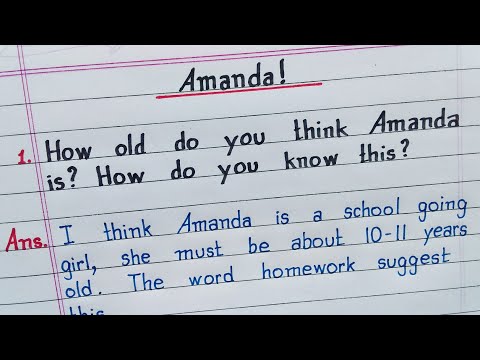 Amanda!
1. How old do you think Amanda
is? How do you know this?
Ans. I think Amanda is a school going
girl, she must be about 10-11 years
old. The word homework suggest
this